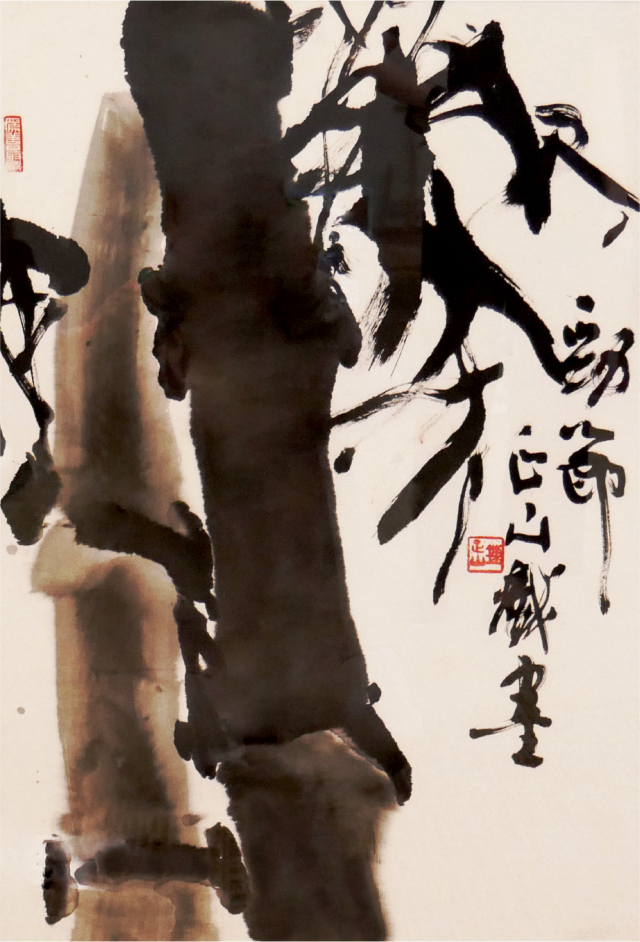 勁節
正山戲畫